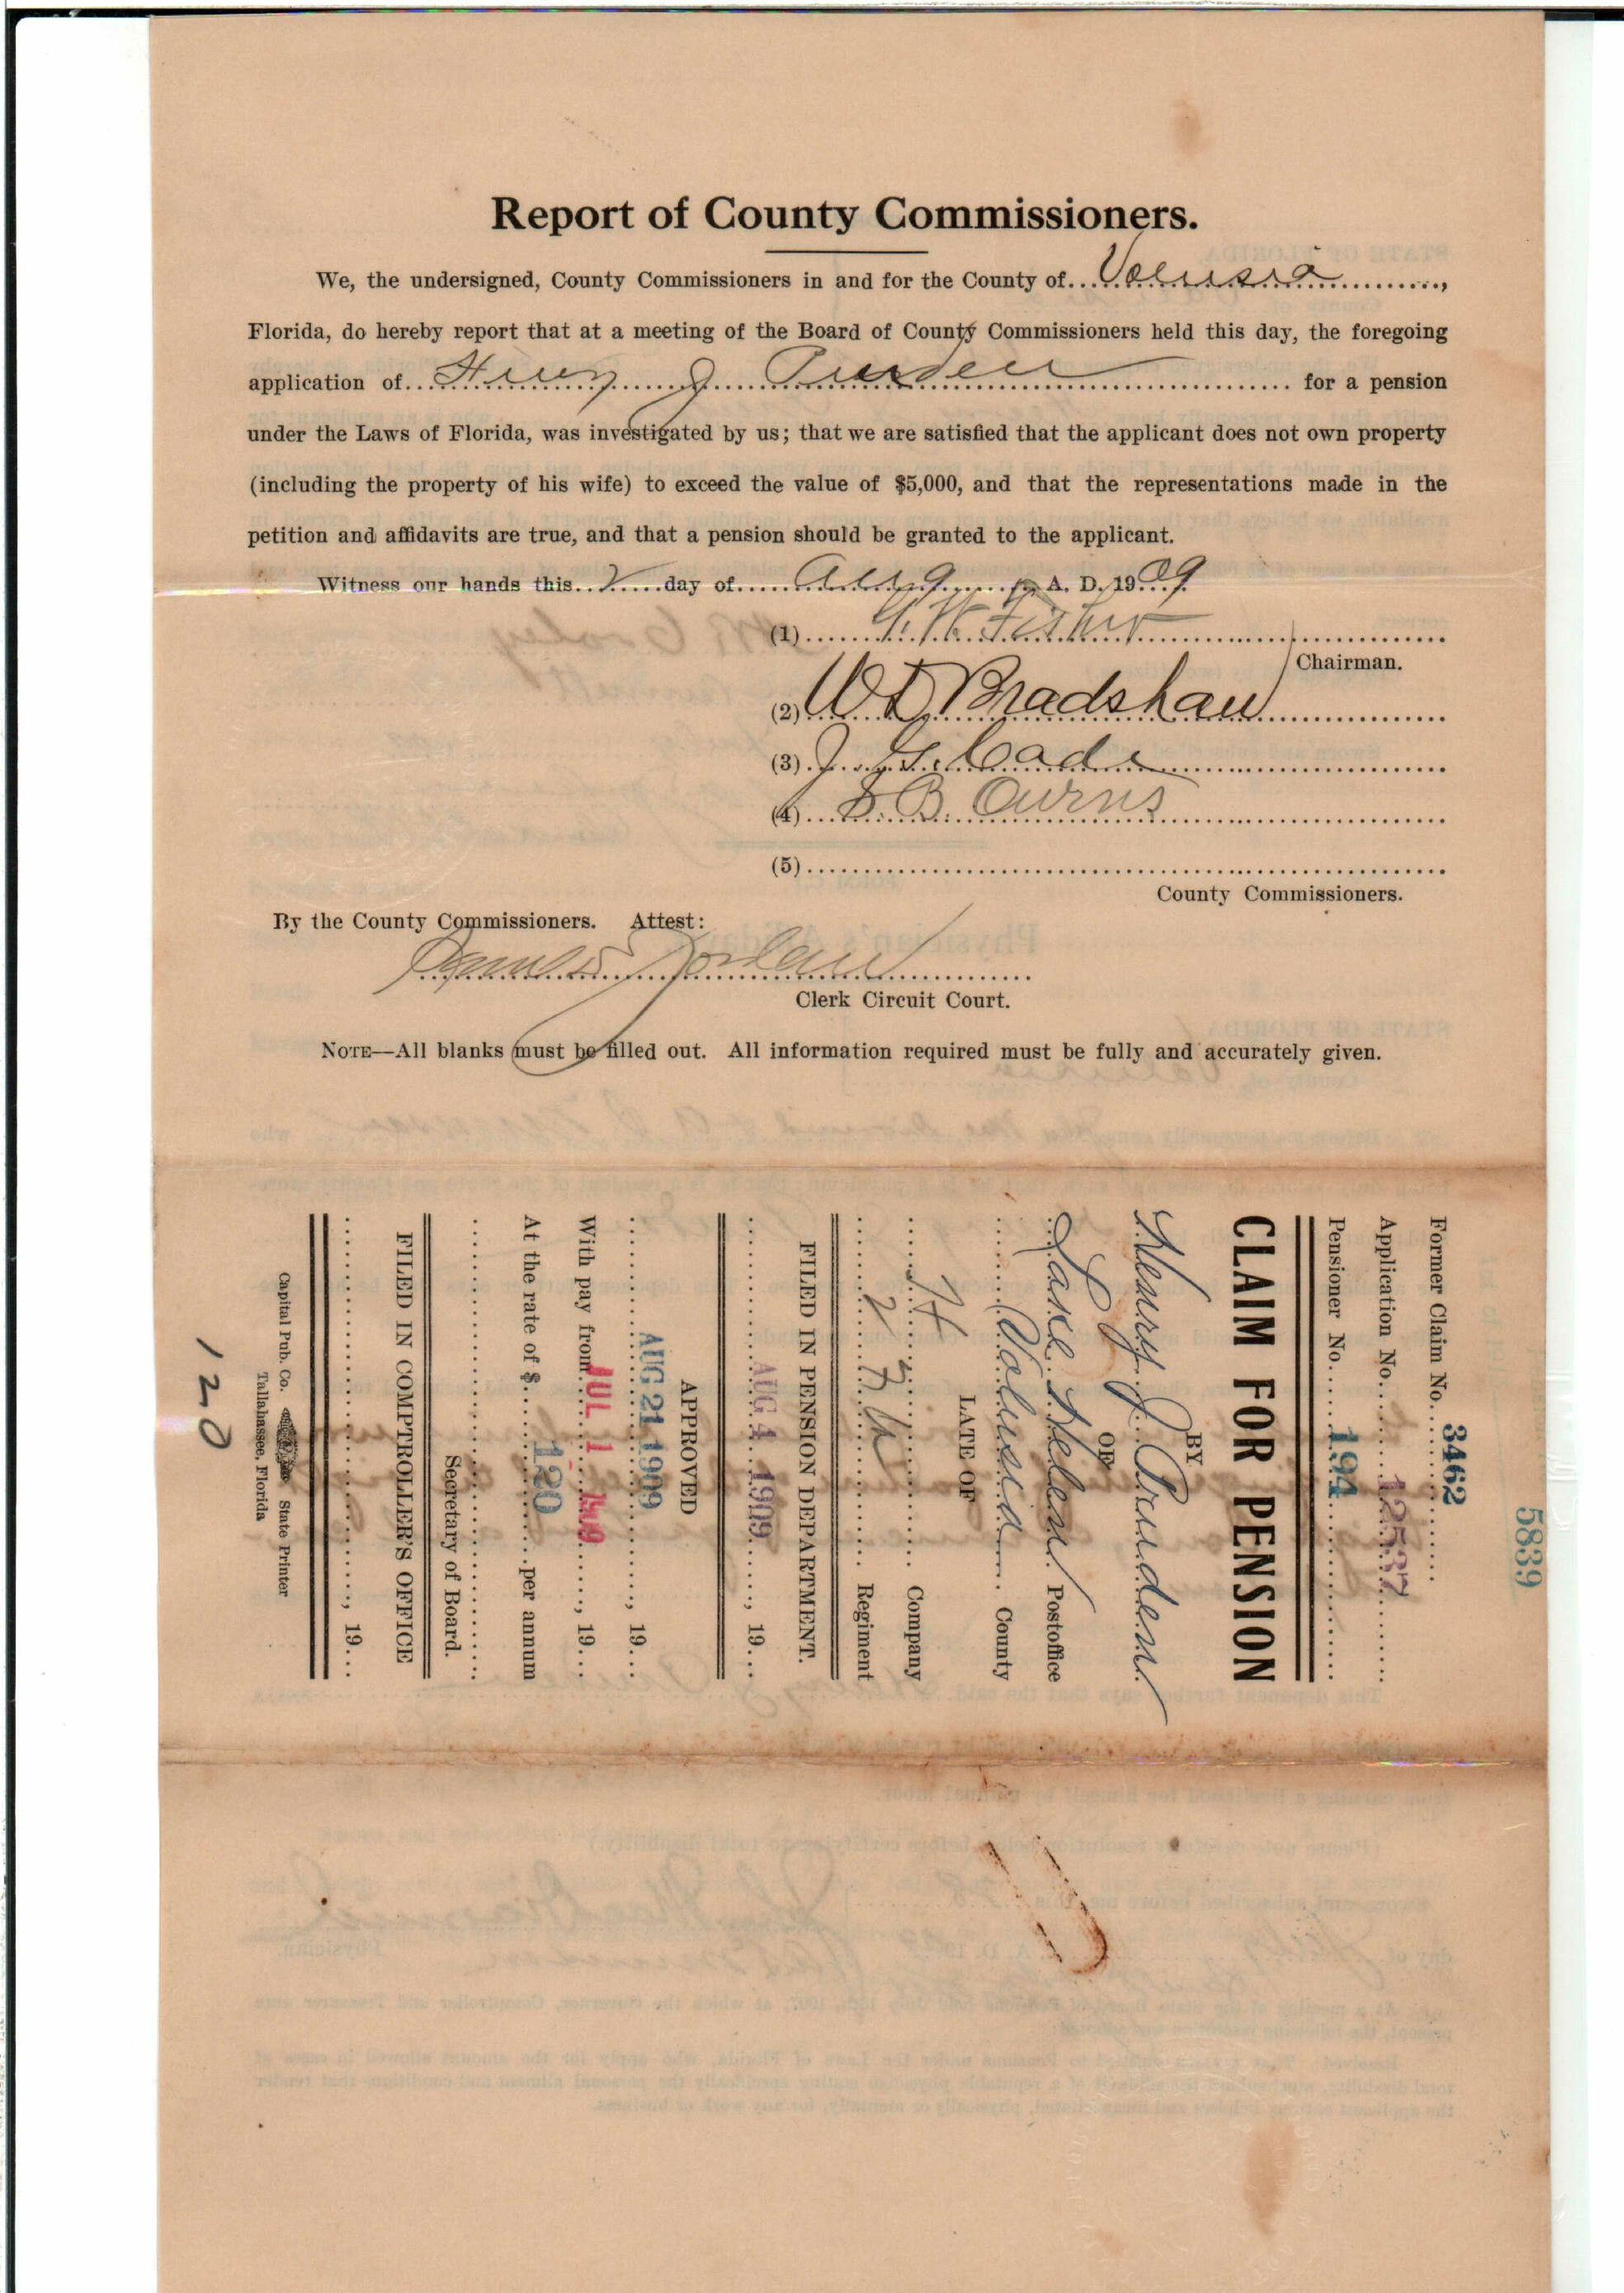 Report of County Commissioners.
We, the undersigned, County Commissioners in and for the County of Volusia,
Florida, do hereby report that at a meeting of the Board of County Commissioners held this day, the foregoing
application of Henry J Pruden for a pension
under the Laws of Florida, was investigated by us; that we are satisfied that the applicant does not own property
(including the property of his wife) to exceed the value of $5,000, and that the representations made in the
petition and affidavits are true, and that a pension should be granted to the applicant.
Witness our hands this day of Aug A. D. 1909
(1) Fisher
Chairman.
(2) W D Bradshaw
(3) J. G. Cade
(4) B. Owens
(5)
County Commissioners.
By the County Commissioners. Attest:
Clerk Circuit Court.
NOTE—All blanks must be filled out. All information required must be fully and accurately given.
5839
Former Claim No. 3462
Application No. 12537
Pensioner No. 194
CLAIM FOR PENSION
BY
Henry J. Pruden
OF
Lake Helen Postoffice
Volusia County
LATE OF
H Company
Regiment
FILED IN PENSION DEPARTMENT.
AUG 4 1909, 19
APPROVED
AUG 21 1909, 19
With pay from JUL 1 1909, 19
At the rate of $ 120 per annum
Secretary of Board.
FILED IN COMPTROLLER'S OFFICE
, 19
Capital Pub. Co. State Printer
Tallahassee, Florida
120